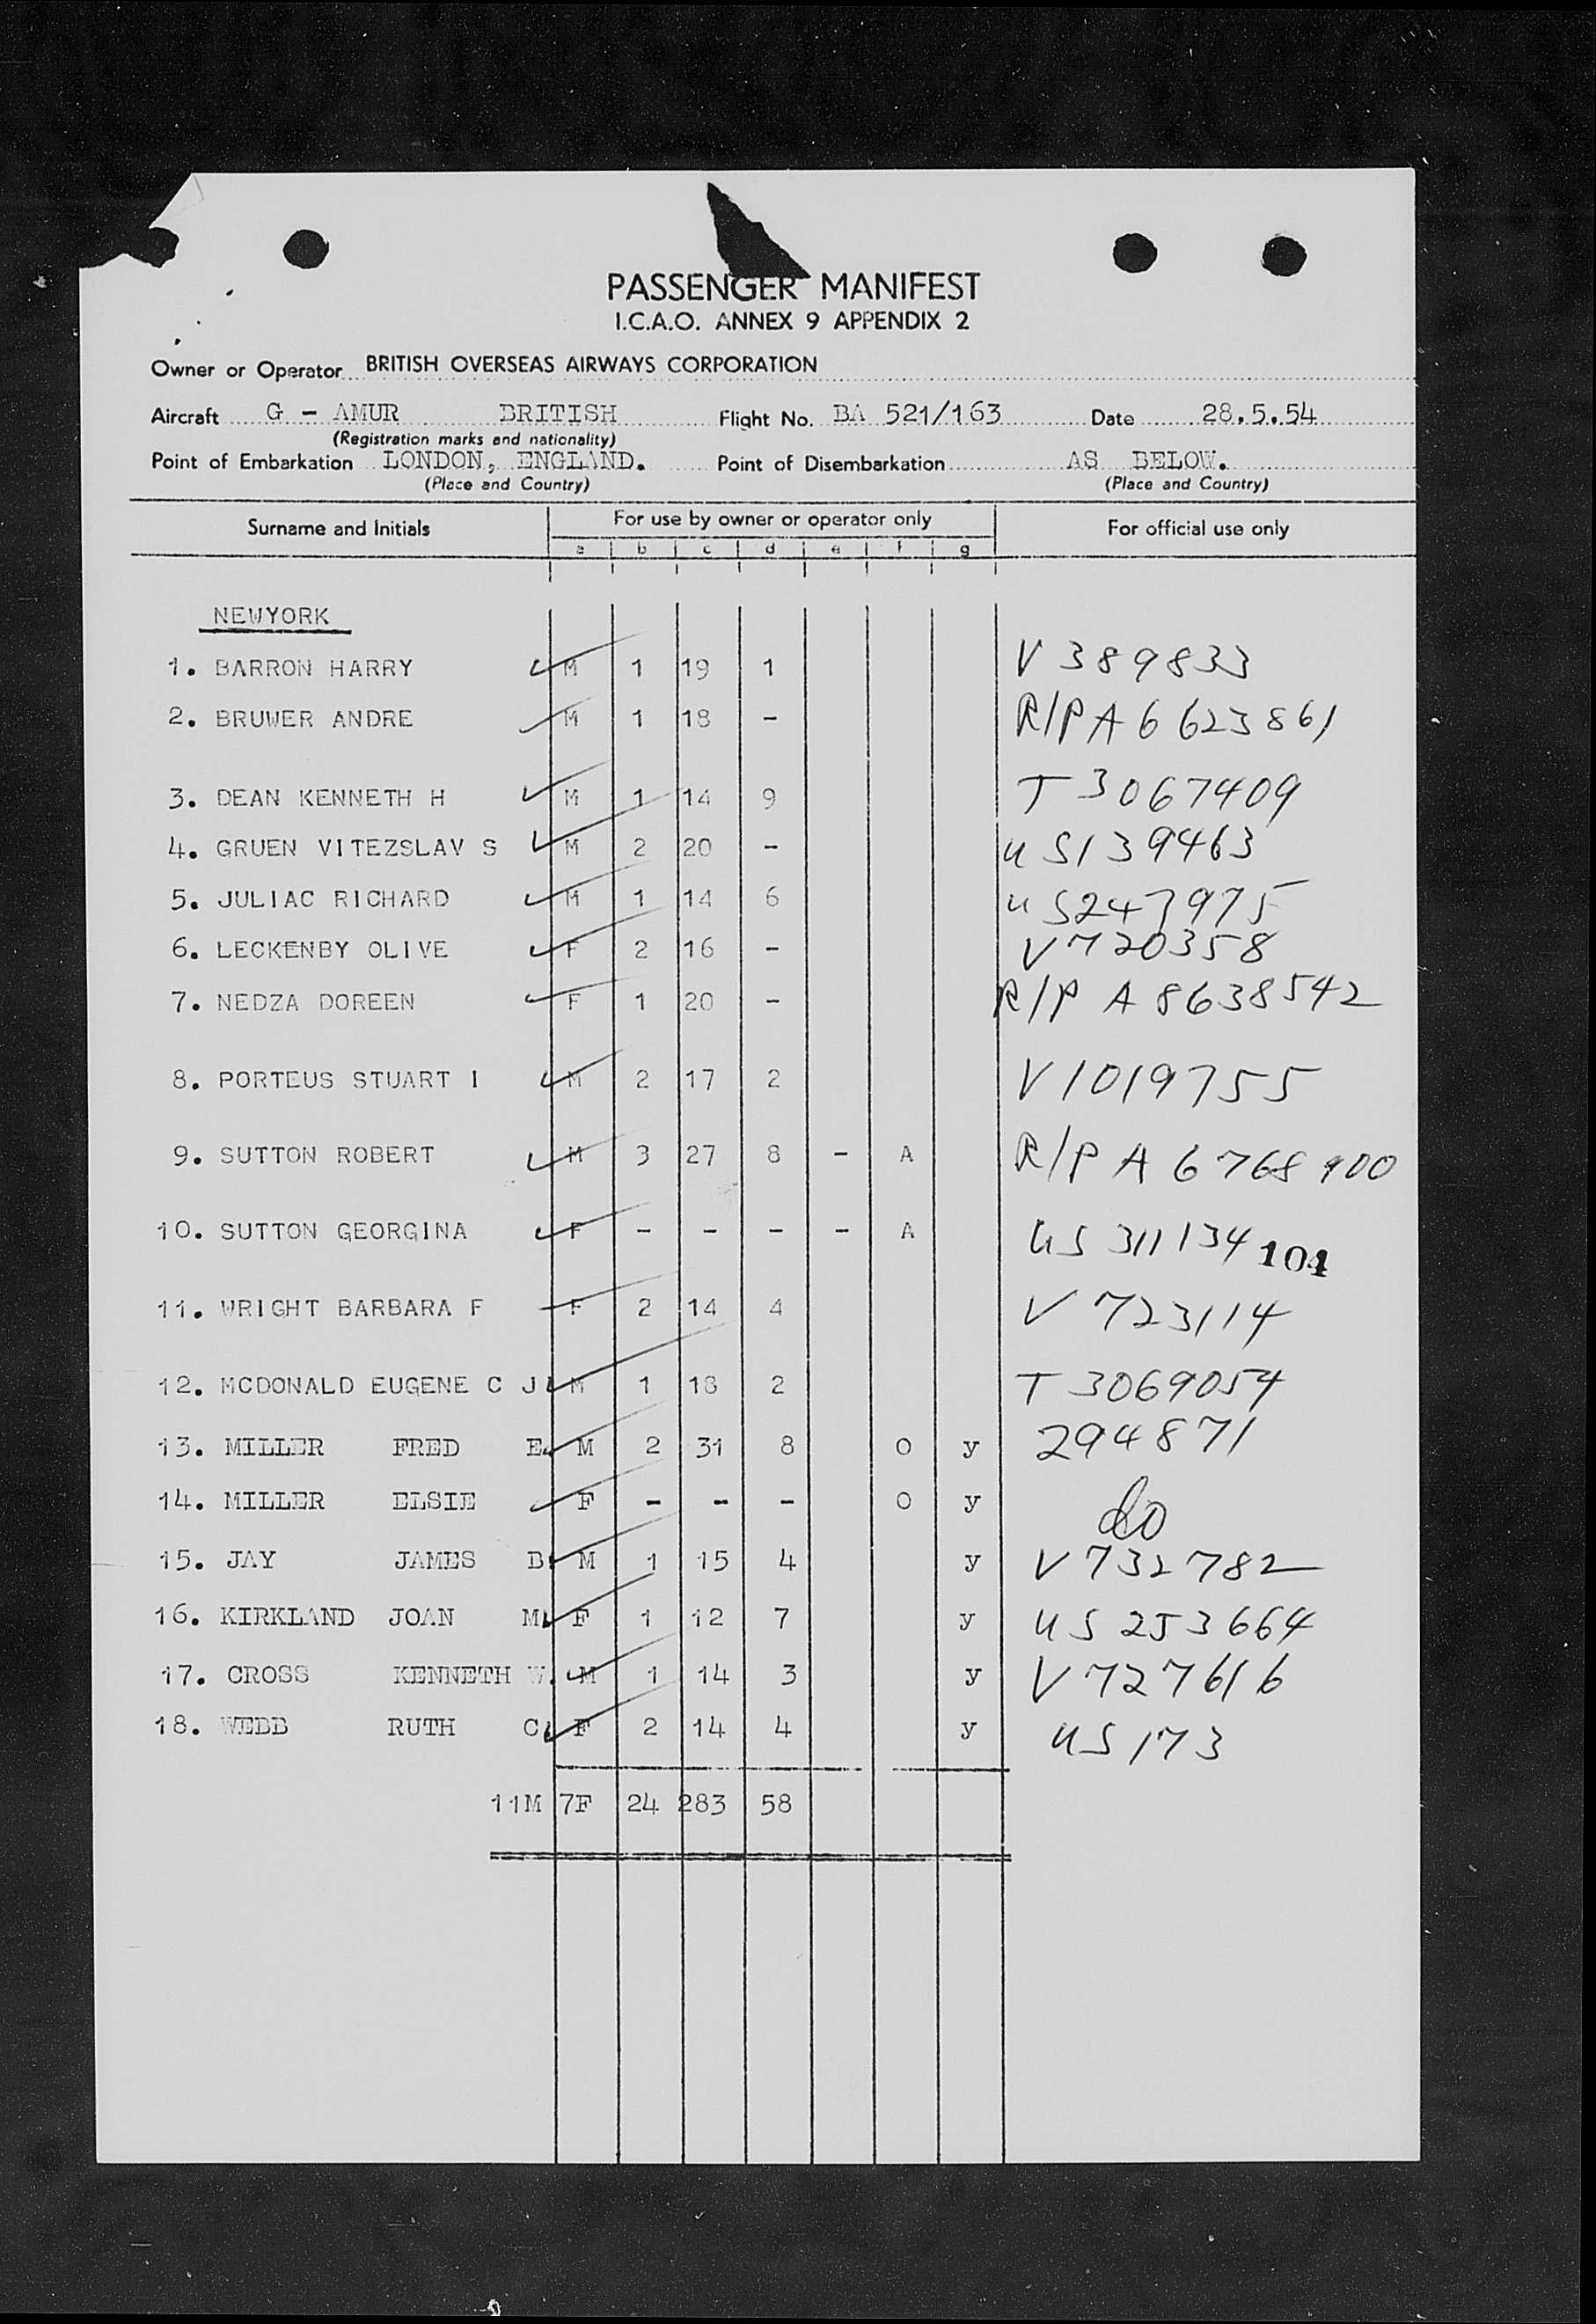 PASSENGER MANIFEST
I.C.A.O. ANNEX 9 APPENDIX 2
Owner or Operator BRITISH OVERSEAS AIRWAYS CORPORATION
Aircraft G - AMUR BRITISH Flight No. BA 521/163 Date 28.5.54
(Registration marks and nationality)
Point of Embarkation LONDON, ENGLAND. Point of Disembarkation AS BELOW.
(Place and Country) (Place and Country)
Surname and Initials For use by owner or operator only For official use only
a b c d e f g
NEWYORK
1. BARRON HARRY M 1 19 1 V 389833
2. BRUWER ANDRE M 1 18 - R/P A6 623861
3. DEAN KENNETH H M 1 14 9 T 3067409
4. GRUEN VITEZSLAV S M 2 20 - US139463
5. JULIAC RICHARD M 1 14 6 US247975
6. LECKENBY OLIVE F 2 16 - V720358
7. NEDZA DOREEN F 1 20 - R/P A 8638542
8. PORTEUS STUART I M 2 17 2 V1019755
9. SUTTON ROBERT M 3 27 8 - A R/P A 6768900
10. SUTTON GEORGINA F - - - - A US 311134 101
11. WRIGHT BARBARA F F 2 14 4 V 723114
12. MCDONALD EUGENE C J M 1 18 2 T 3069054
13. MILLER FRED E. M 2 31 8 O y 294871
14. MILLER ELSIE F - - - O y do
15. JAY JAMES B M 1 15 4 y V732782
16. KIRKLAND JOAN M F 1 12 7 y US 253664
17. CROSS KENNETH W. M 1 14 3 y V727616
18. WEBB RUTH C F 2 14 4 y US 173
11M 7F 24 283 58